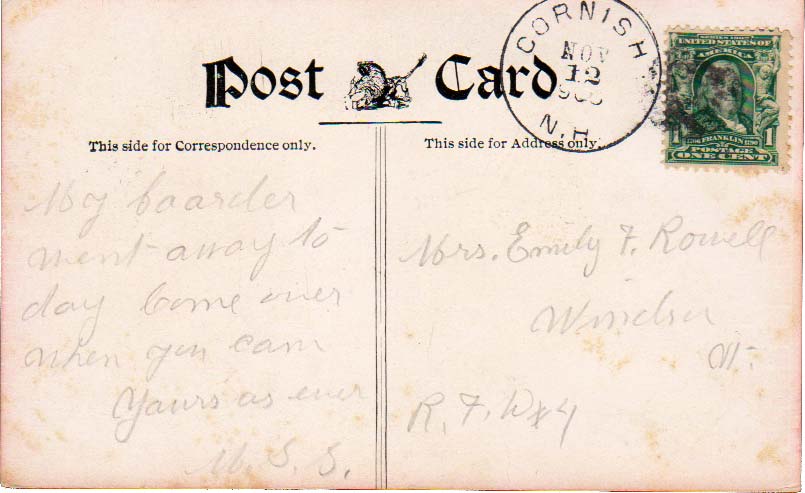 Post Card
CORNISH
NOV
12
N.H.
UNITED STATES OF
AMERICA
1 FRANKLIN 1
POSTAGE
ONE CENT
This side for Correspondence only.
This side for Address only.
My boarder
went away to
day come over
when you cam
Yours as ever
M. S. S.
Mrs. Emily F. Rowell
Windsor
Vt.
R. F. D x 4